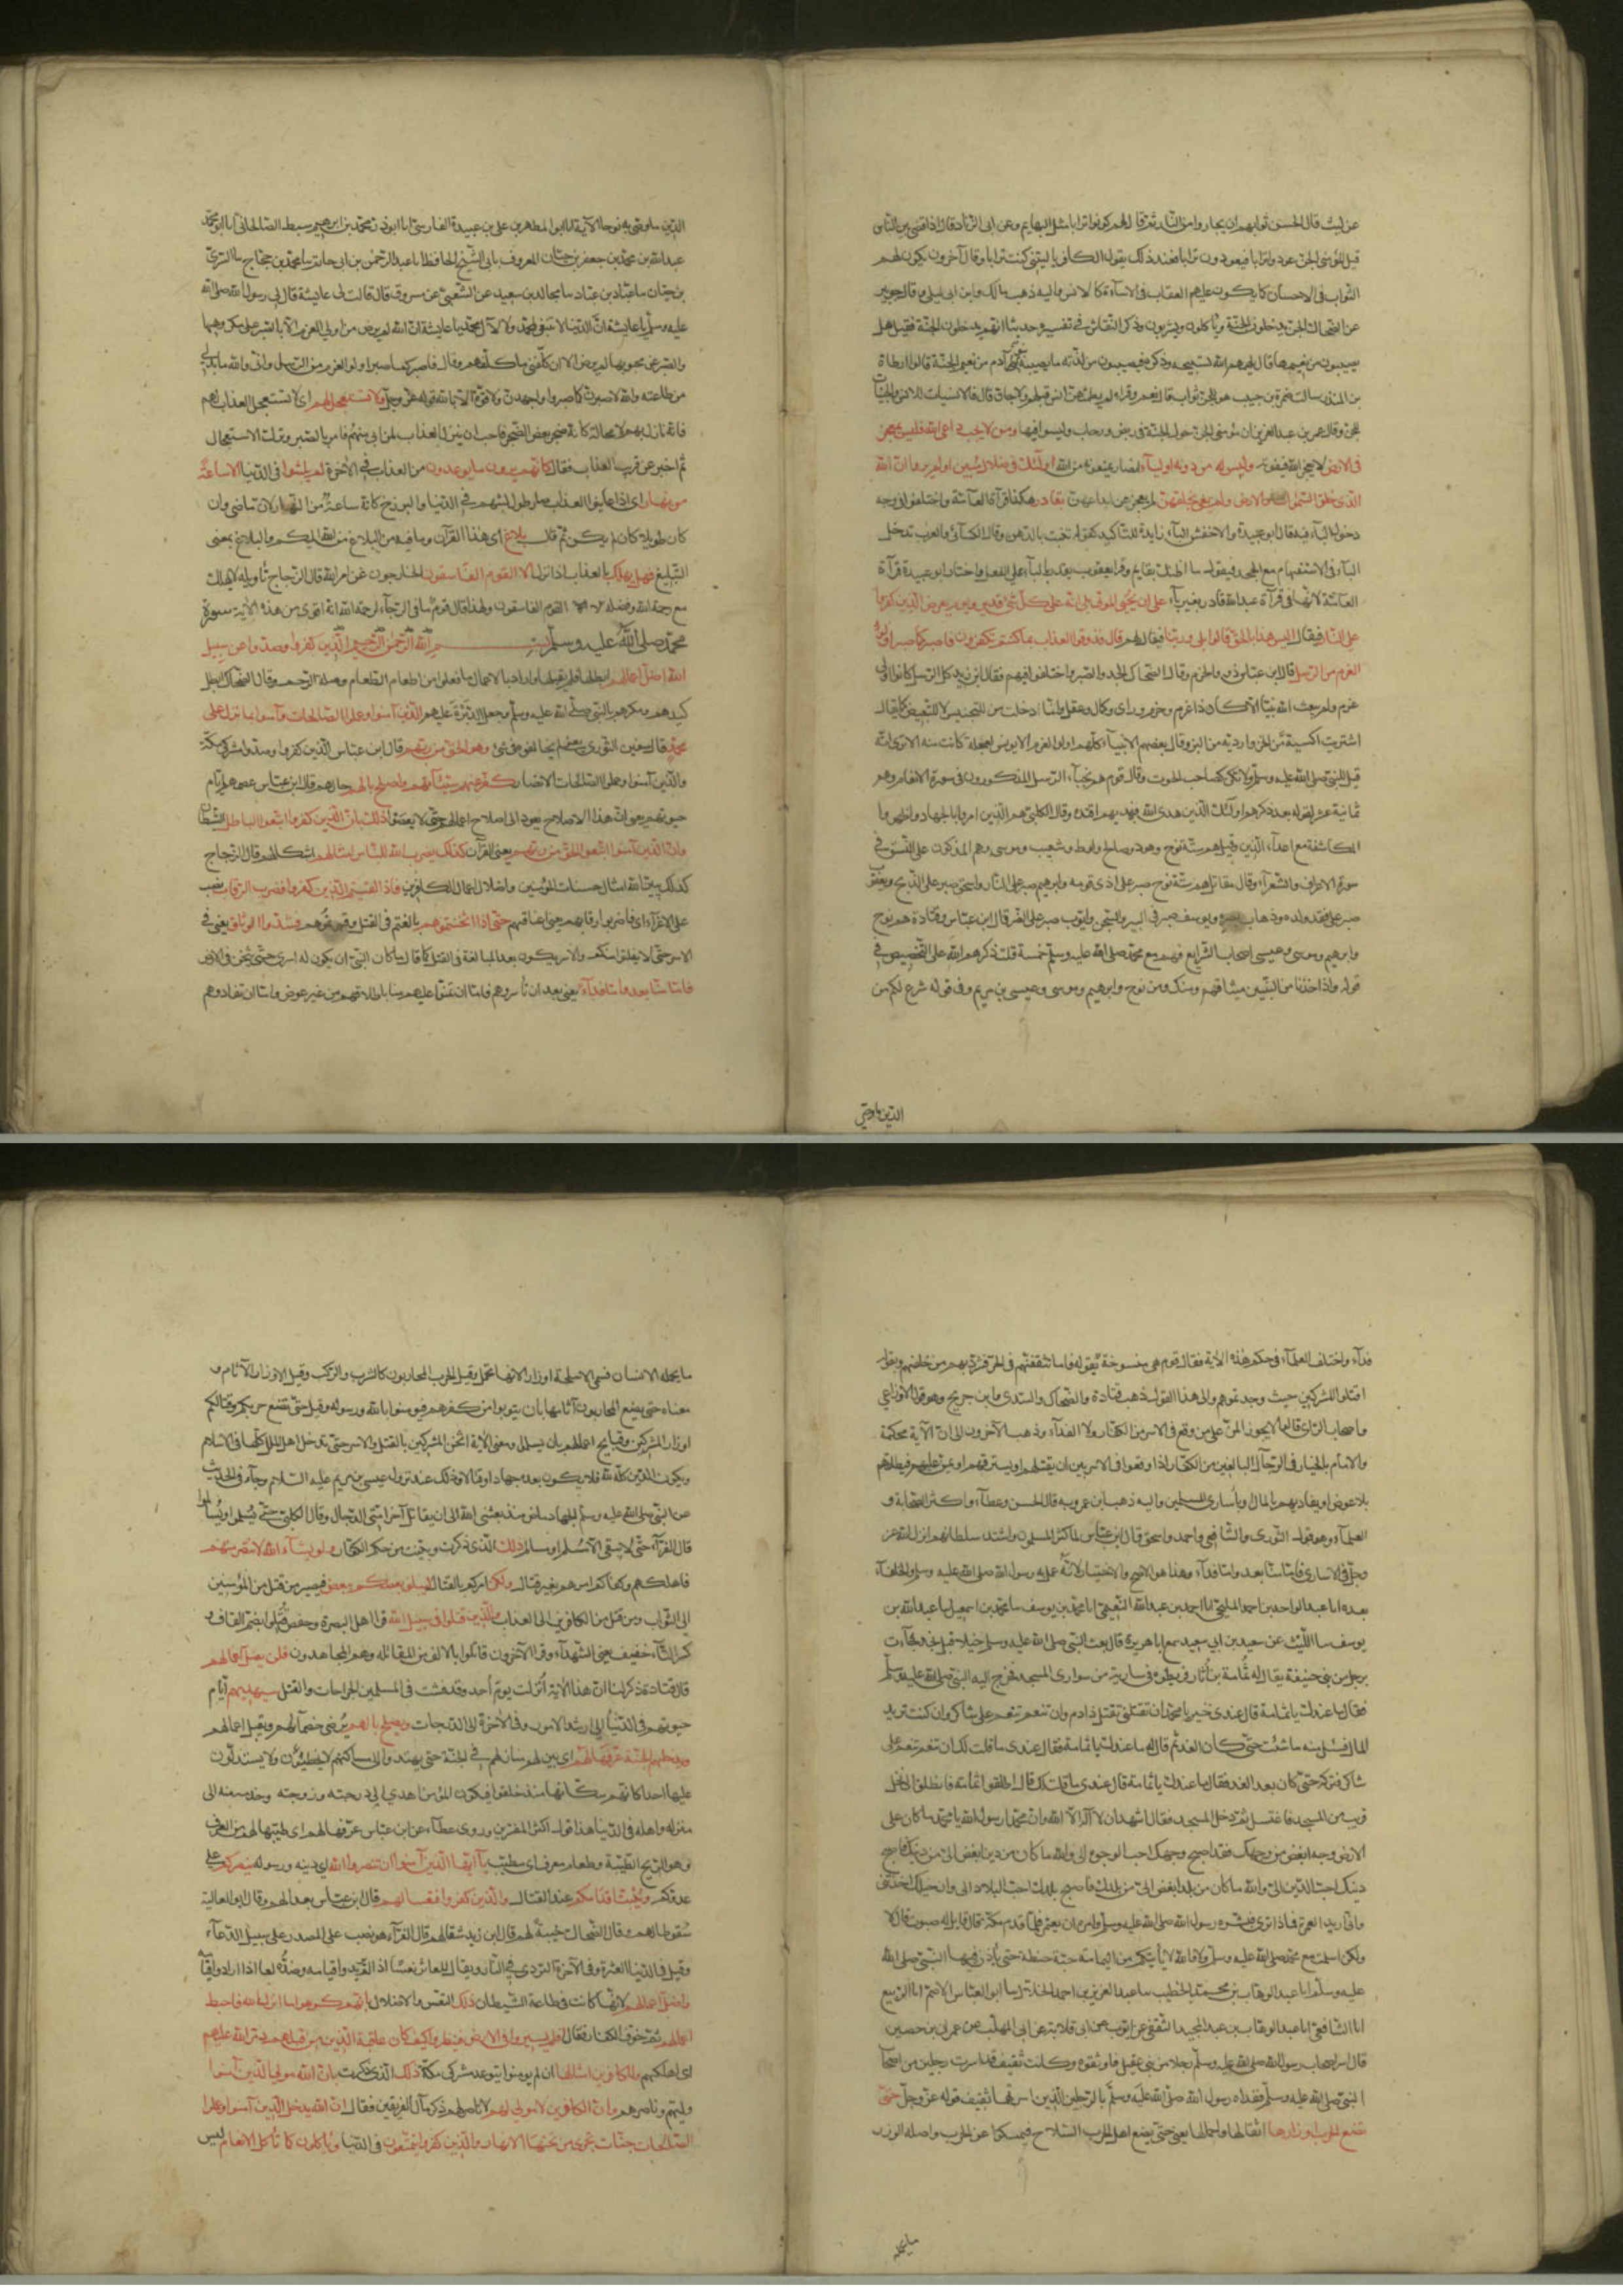 عن ليث قال الحسن ثوابهم ان يجاروا من النار ثم يقال لهم كونوا ترابا مثل البهايم وعن ابى الزناد قال اذا قضى بين الناس
قيل لمؤمنى الجن عودوا ترابا فيعودون ترابا فعند ذلك يقول الكافر يا ليتنى كنت ترابا وقال آخرون يكون لهم
الثواب فى الاحسان كما يكون عليهم العقاب فى الاساءة كالانس واليه ذهب مالك وابن ابى ليلى وقال جويبر
عن الضحاك الجن يدخلون الجنة وياكلون ويشربون وذكر النقاش فى تفسيره حديثا انهم يدخلون الجنة فقيل هل
يصيبون من نعيمها قال يلهمهم الله تسبيحه وذكره فيصيبون من لذته ما يصيبه بنو آدم من نعيم الجنة قال ارطاة
بن المنذر سالت ضمرة بن حبيب هل للجن ثواب قال نعم وقرا لم يطمثهن انس قبلهم ولا جان قال فالانسيات للانس والجنيات
للجن وقال عمر بن عبد العزيز ان مؤمنى الجن حول الجنة فى ربض ورحاب وليسوا فيها ومن لا يجب داعى الله فليس بمعجز
فى الارض لا يعجز الله فيفوته وليس له من دونه اوليآء انصار يمنعونه من الله اولئك فى ضلال مبين اولم يروا ان الله
الذى خلق السموات والارض ولم يعى بخلقهن لم يعجز عن ابداعهن بقادر هكذا قرآءة العآمة واختلفوا فى وجه
دخول البآء فيه فقال ابو عبيدة والاخفش البآء زايدة للتاكيد كقوله تنبت بالدهن وقال الكسآئى والعرب تدخل
البآء فى الاستفهام مع الجحد فيقول ما اظنك بقايم وقرا يعقوب يقدر باليآء على الفعل واختار ابو عبيدة قرآءة
العآمة لانها فى قرآءة عبد الله قادر بغير بآء على ان يحيى الموتى بلى انه على كل شئ قدير ويوم يعرض الذين كفروا
على النار فيقال اليس هذا بالحق قالوا بلى وربنا فيقال لهم قال فذوقوا العذاب بما كنتم تكفرون فاصبر كما صبر اولوا
العزم من الرسل قال ابن عباس ذو والحزم وقال الضحاك الجد والصبر واختلفوا فيهم فقال ابن زيد كل الرسل كانوا اولى
عزم ولم يبعث الله نبيا الا كان ذا عزم وحزم وراى وكمال وعقل وانما ادخلت من للتجنيس لا للتبعيض كما يقال
اشتريت اكسية من الخز واردية من البز وقال بعضهم الانبيآء كلهم اولوا العزم الا يونس لعجلة كانت منه الا ترى انه
قيل للنبى صلى الله عليه وسلم ولا تكن كصاحب الحوت وقال قوم هم نجبآء الرسل المذكورون فى سورة الانعام وهم
ثمانية عشر لقوله بعد ذكرهم اولئك الذين هدى الله فبهديهم اقتده وقال الكلبى هم الذين امروا بالجهاد واظهروا
المكاشفة مع اعدآء الدين وقيل هم ستة نوح وهود وصالح ولوط وشعيب وموسى وهم المذكورون على النسق فى
سورة الاعراف والشعرآء وقال مقاتل هم ستة نوح صبر على اذى قومه وابرهيم صبر على النار واسحق صبر على الذبح ويعقوب
صبر على فقد ولده وذهاب بصره ويوسف صبر فى البير والسجن وايوب صبر على الضر قال ابن عباس وقتادة هم نوح
وابرهيم وموسى وعيسى اصحاب الشرايع فهم مع محمد صلى الله عليه وسلم خمسة قلت ذكرهم الله على التخصيص فى
قوله واذ اخذنا من النبيين ميثاقهم ومنك ومن نوح وابرهيم وموسى وعيسى بن مريم وفى قوله شرع لكم من
الدين ما وصى
الدين ما وصى به نوحا الآية انا ابو المطهر بن على بن عبيد الله الفارسى انا ابو ذر محمد بن ابرهيم سبط الصالحانى انا ابو محمد
عبد الله بن محمد بن جعفر بن حيان المعروف بابى الشيخ الحافظ انا عبد الرحمن بن ابى حاتم نا محمد بن حجاج نا السرى
بن حيان نا عباد بن عباد نا مجالد بن سعيد عن الشعبى عن مسروق قال قالت لى عايشة قال لى رسول الله صلى الله
عليه وسلم يا عايشة ان الدنيا لا تنبغى لمحمد ولا لآل محمد يا عايشة ان الله لم يرض من اولى العزم الا بالصبر على مكروهها
والصبر عن محبوبها لم يرض الا ان كلفنى ما كلفهم وقال فاصبر كما صبر اولوا العزم من الرسل وانى والله ما بد لى
من طاعته والله لاصبرن كما صبروا واجهدن ولا قوة الا بالله قوله عز وجل ولا تستعجل لهم اى لا تستعجل العذاب لهم
فانه نازل بهم لا محالة كانه ضجر بعض الضجر فاحب ان ينزل العذاب لمن ابى منهم فامر بالصبر وترك الاستعجال
ثم اخبر عن قرب العذاب فقال كانهم يوم يرون ما يوعدون من العذاب فى الآخرة لم يلبثوا فى الدنيا الا ساعة
من نهار اى اذا عاينوا العذاب صار طول لبثهم فى الدنيا والبرزخ كانه ساعة من النهار لان ما مضى وان
كان طويلا كان لم يكن ثم قال بلاغ اى هذا القرآن وما فيه من البلاغ من الله اليكم والبلاغ بمعنى
التبليغ فهل يهلك بالعذاب اذا نزل الا القوم الفاسقون الخارجون عن امر الله قال الزجاج تاويله لا يهلك
مع رحمة الله وفضله الا القوم الفاسقون ولهذا قال قوم ما فى الرجآء لرحمة الله آية اقوى من هذه الآية سورة
محمد صلى الله عليه وسلم بسم الله الرحمن الرحيم الذين كفروا وصدوا عن سبيل
الله اضل اعمالهم ابطلها فلم يقبلها واراد بالاعمال ما فعلوا من اطعام الطعام وصلة الرحم وقال الضحاك ابطل
كيدهم ومكرهم بالنبى صلى الله عليه وسلم وجعل الدبرة عليهم والذين آمنوا وعملوا الصالحات وآمنوا بما نزل على
محمد قال سفين الثورى يعنى لم يخالفوه فى شئ وهو الحق من ربهم قال ابن عباس الذين كفروا وصدوا مشركو مكة
والذين آمنوا وعملوا الصالحات الانصار كفر عنهم سيئآتهم واصلح بالهم حالهم قال ابن عباس عصمهم ايام
حيوتهم يعنى ان هذا الاصلاح يعود الى اصلاح اعمالهم حتى لا يعصوا ذلك بان الذين كفروا اتبعوا الباطل الشيطان
وان الذين آمنوا اتبعوا الحق من ربهم يعنى القرآن كذلك يضرب الله للناس امثالهم اشكالهم قال الزجاج
كذلك يبين الله امثال حسنات المؤمنين واضلال اعمال الكافرين فاذا لقيتم الذين كفروا فضرب الرقاب نصب
على الاغرآء اى فاضربوا رقابهم يعنى اعناقهم حتى اذا اثخنتموهم بالغتم فى القتل وقهرتموهم فشدوا الوثاق يعنى فى
الاسر حتى لا يفلتوا منكم والاسر يكون بعد المبالغة فى القتل كما قال ما كان لنبى ان يكون له اسرى حتى يثخن فى الارض
فاما منا بعد واما فدآء يعنى بعد ان تأسروهم فاما ان تمنوا عليهم منا باطلاقهم من غير عوض واما ان تفادوهم
فدآء واختلف العلمآء فى حكم هذه الآية فقال قوم هى منسوخة بقوله فاما تثقفنهم فى الحرب فشرد بهم من خلفهم وبقوله
اقتلوا المشركين حيث وجدتموهم والى هذا القول ذهب قتادة والضحاك والسدى وابن جريج وهو قول الاوزاعى
واصحاب الراى قالوا لا يجوز المن على من وقع فى الاسر من الكفار ولا الفدآء وذهب الآخرون الى ان الآية محكمة
والامام بالخيار فى الرجال البالغين من الكفار اذا وقعوا فى الاسر بين ان يقتلهم او يسترقهم او يمن عليهم فيطلقهم
بلا عوض او يفاديهم بالمال وباسارى المسلمين واليه ذهب ابن عمر وبه قال الحسن وعطآء واكثر الصحابة و
العلمآء وهو قول الثورى والشافعى واحمد واسحق قال ابن عباس لما كثر المسلمون واشتد سلطانهم انزل الله عز
وجل فى الاسارى فاما منا بعد واما فدآء وهذا هو الاصح والاختيار لانه عمل به رسول الله صلى الله عليه وسلم والخلفآء
بعده انا عبد الواحد بن احمد المليحى انا احمد بن عبد الله النعيمى انا محمد بن يوسف نا محمد بن اسمعيل نا عبد الله بن
يوسف نا الليث عن سعيد بن ابى سعيد سمع ابا هريرة قال بعث النبى صلى الله عليه وسلم خيلا قبل نجد فجآءت
برجل من بنى حنيفة يقال له ثمامة بن اثال فربطوه فى سارية من سوارى المسجد فخرج اليه النبى صلى الله عليه وسلم
فقال ما عندك يا ثمامة قال عندى خير يا محمد ان تقتلنى تقتل ذا دم وان تنعم تنعم على شاكر وان كنت تريد
المال فسل منه ما شئت حتى كان الغد ثم قال له ما عندك يا ثمامة فقال عندى ما قلت لك ان تنعم تنعم على
شاكر فتركه حتى كان بعد الغد فقال ما عندك يا ثمامة قال عندى ما قلت لك قال اطلقوا ثمامة فانطلق الى نخل
قريب من المسجد فاغتسل ثم دخل المسجد فقال اشهد ان لا اله الا الله وان محمدا رسول الله يا محمد ما كان على
الارض وجه ابغض من وجهك فقد اصبح وجهك احب الوجوه الى والله ما كان من دين ابغض الى من دينك فاصبح
دينك احب الدين الى والله ما كان من بلد ابغض الى من بلدك فاصبح بلدك احب البلاد الى وان خيلك اخذتنى
وانا اريد العمرة فماذا ترى فبشره رسول الله صلى الله عليه وسلم وامره ان يعتمر فلما قدم مكة قال قايل له صبوت قال لا
ولكن اسلمت مع محمد صلى الله عليه وسلم ولا والله لا يأتيكم من اليمامة حبة حنطة حتى يأذن فيها النبى صلى الله
عليه وسلم انا عبد الوهاب بن محمد الخطيب نا عبد العزيز بن احمد الخلال نا ابو العباس الاصم انا الربيع
انا الشافعى انا عبد الوهاب بن عبد المجيد الثقفى عن ايوب عن ابى قلابة عن ابى المهلب عن عمران بن حصين
قال اسر اصحاب رسول الله صلى الله عليه وسلم رجلا من بنى عقيل فاوثقوه وكانت ثقيف قد اسرت رجلين من اصحاب
النبى صلى الله عليه وسلم ففداه رسول الله صلى الله عليه وسلم بالرجلين الذين اسرتهما ثقيف قوله عز وجل حتى
تضع الحرب اوزارها اثقالها واحمالها يعنى حتى تضع اهل الحرب السلاح فيمسكوا عن الحرب واصله الوزر
ما يحمله
ما يحمله الانسان فسمى الاسلحة اوزارا لانها تحمل وقيل الحرب المحاربون كالشرب والركب وقيل الاوزار الآثام و
معناه حتى يضع المحاربون آثامها بان يتوبوا من كفرهم فيومنوا بالله ورسوله وقيل حتى تضع حربكم وقتالكم
اوزار المشركين وقبايح اعمالهم بان يسلموا ومعنى الآية اثخنوا المشركين بالقتل والاسر حتى تدخل اهل الملل كلها فى الاسلام
ويكون الدين كله لله فلا يكون بعده جهاد ولا قتال وذلك عند نزول عيسى بن مريم عليه السلام وجآء فى الحديث
عن النبى صلى الله عليه وسلم الجهاد ماض منذ بعثنى الله الى ان يقاتل آخر امتى الدجال وقال الكلبى حتى يسلموا او يسالموا
قال الفرآء حتى لا يبقى الا مسلم او مسالم ذلك الذى ذكرت وبينت من حكم الكفار ولو يشآء الله لانتصر منهم
فاهلكهم وكفاكم امرهم بغير قتال ولكن امركم بالقتال ليبلو بعضكم ببعض فيصير من قتل من المؤمنين
الى الثواب ومن قتل من الكافرين الى العذاب والذين قتلوا فى سبيل الله قرا اهل البصرة وحفص قُتِلوا بضم القاف و
كسر التآء خفيف يعنى الشهدآء وقرا الآخرون قاتلوا بالالف من المقاتلة وهم المجاهدون فلن يضل اعمالهم
قال قتادة ذكر لنا ان هذه الآية انزلت يوم احد وقد فشت فى المسلمين الجراحات والقتل سيهديهم ايام
حيوتهم فى الدنيا الى ارشد الامور وفى الآخرة الى الدرجات ويصلح بالهم يرضى خصمآءهم ويقبل اعمالهم
ويدخلهم الجنة عرفها لهم اى بين لهم منازلهم فى الجنة حتى يهتدوا الى مساكنهم لا يخطئون ولا يستدلون
عليها احدا كانهم سكانها منذ خلقوا فيكون المؤمن اهدى الى درجته وزوجته وخدمه منه الى
منزله واهله فى الدنيا هذا قول اكثر المفسرين وروى عطآء عن ابن عباس عرفها لهم اى طيبها لهم من العرف
وهو الريح الطيبة وطعام معرف اى مطيب يآ ايها الذين آمنوا ان تنصروا الله اى دينه ورسوله ينصركم على
عدوكم ويثبت اقدامكم عند القتال والذين كفروا فتعسا لهم قال ابن عباس بعدا لهم وقال ابو العالية
سقوطا لهم وقال الضحاك خيبة لهم قال ابن زيد شقآء لهم قال الفرآء هو نصب على المصدر على سبيل الدعآء
وقيل فى الدنيا العثرة وفى الآخرة التردى فى النار ويقال للعاثر تعسا اذا لم يريدوا قيامه وضده لعا اذا ارادوا قيامه
واضل اعمالهم لانها كانت فى طاعة الشيطان ذلك التعس والاضلال بانهم كرهوا ما انزل الله فاحبط
اعمالهم ثم خوف الكفار فقال افلم يسيروا فى الارض فينظروا كيف كان عاقبة الذين من قبلهم دمر الله عليهم
اى اهلكهم وللكافرين امثالها ان لم يومنوا يتوعد مشركى مكة ذلك الذى ذكرت بان الله مولى الذين آمنوا
وليهم وناصرهم وان الكافرين لا مولى لهم لا ناصر لهم ثم ذكر مآل الفريقين فقال ان الله يدخل الذين آمنوا وعملوا
الصالحات جنات تجرى من تحتها الانهار والذين كفروا يتمتعون فى الدنيا ويأكلون كما تأكل الانعام ليس